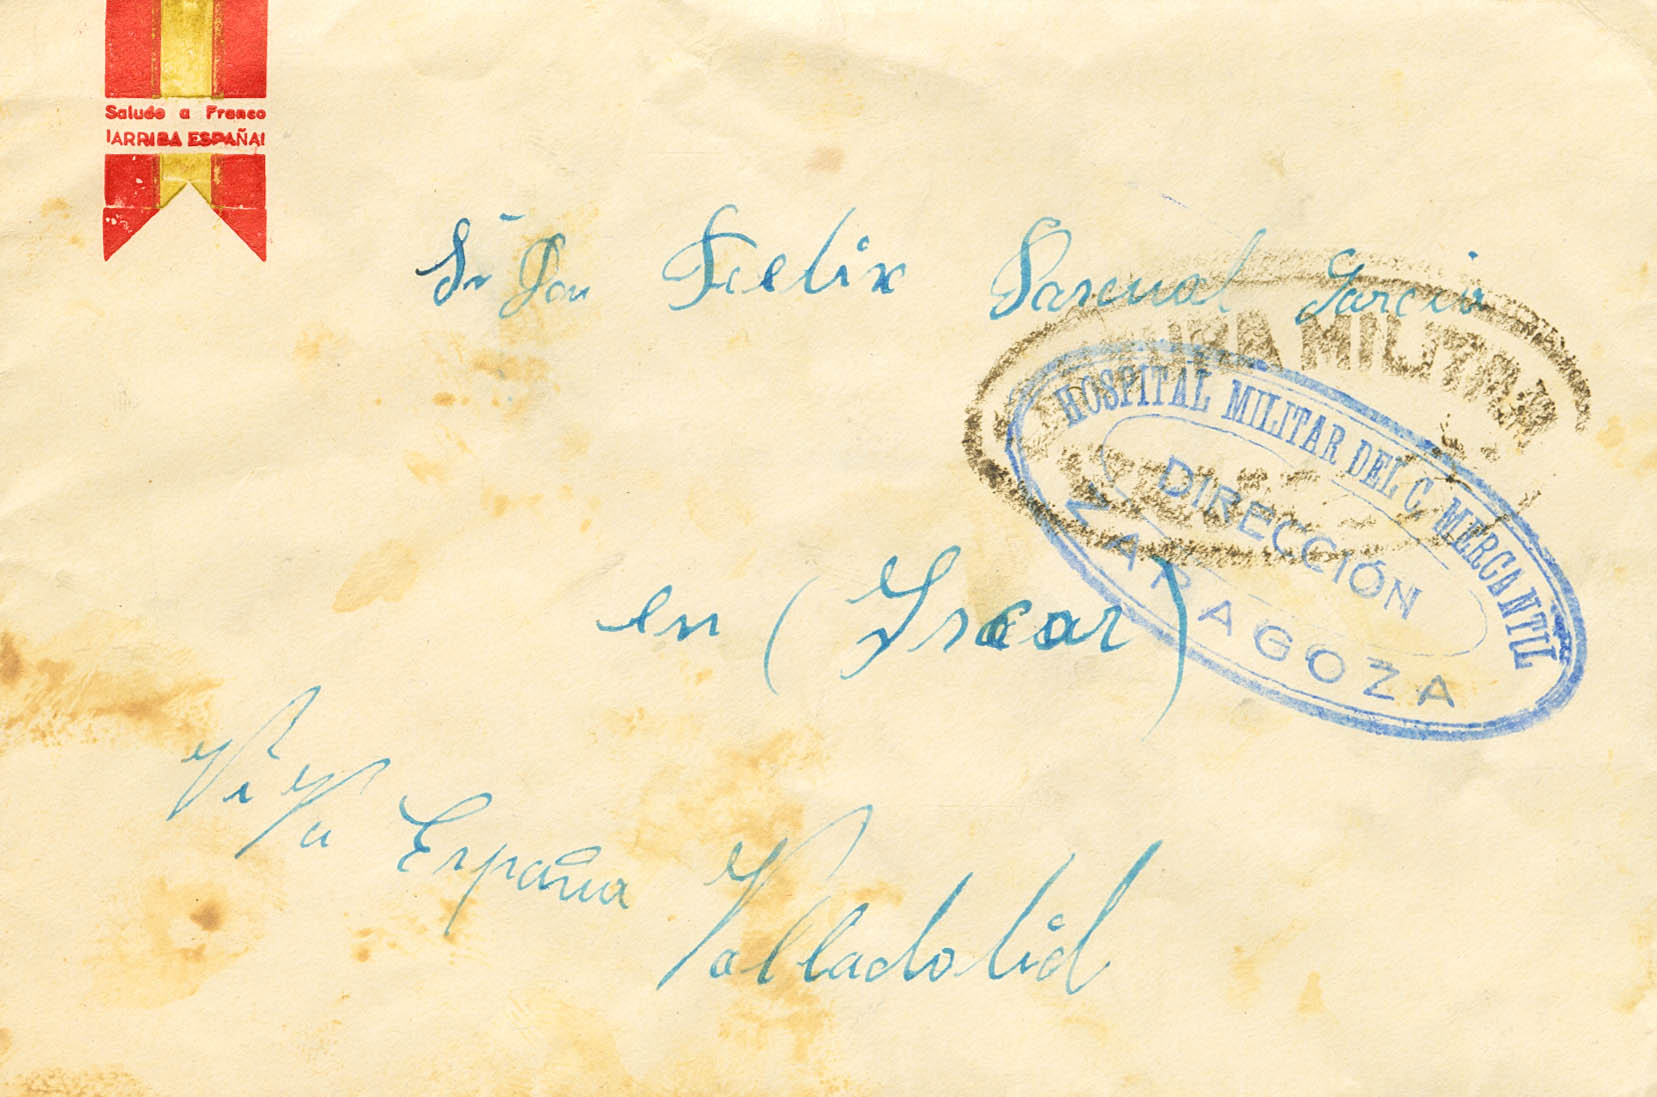 Saludo a Franco
¡ARRIBA ESPAÑA!
Sr Don Felix Pascual Garcia
MILITAR
HOSPITAL MILITAR DEL C. MERCANTIL
DIRECCIÓN
ZARAGOZA
en (Yscar)
Viva España
Valladolid